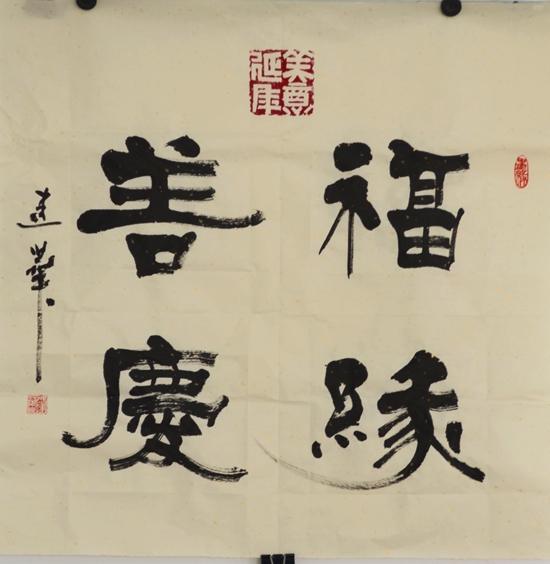 美意延年
福緣
善慶